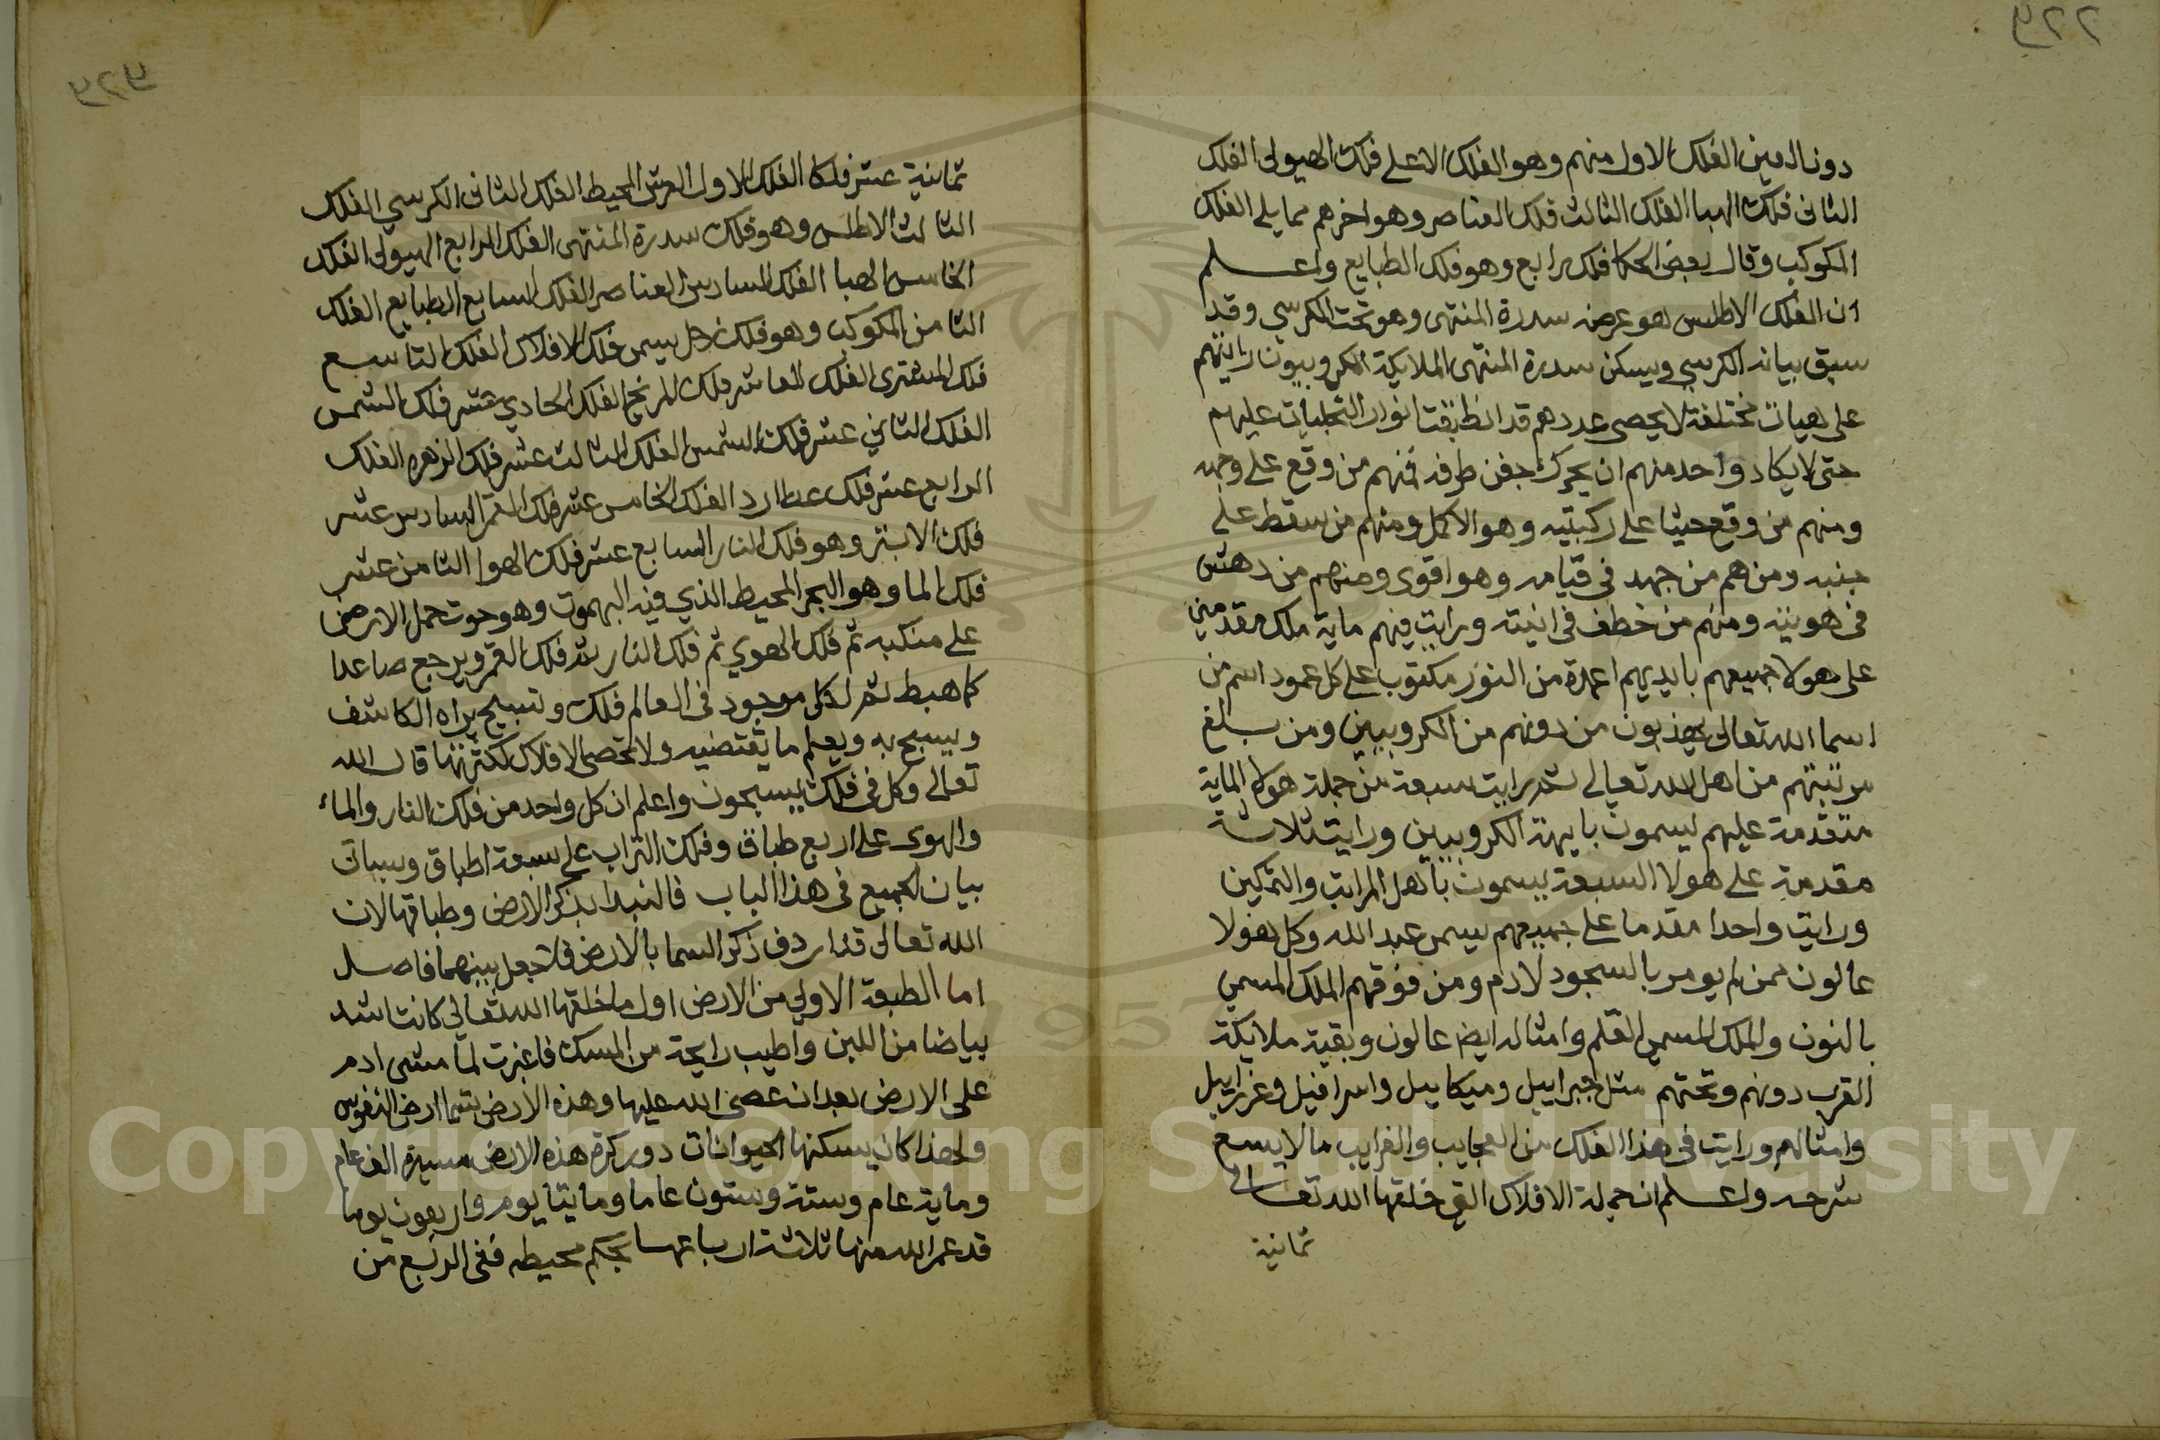 دونالدمين الفلك الاول منهم وهو الفلك الاعلى فلك الهيولى الفلك
الثانى فلك الهبا الفلك الثالث فلك العناصر وهو اخرهم مما يلى الفلك
المكوكب وقال بعض الحكما فلك رابع وهو فلك الطبايع واعلم
ان الفلك الاطلس هو عرضه سدرة المنتهى وهو تحت الكرسي وقد
سبق بيانه الكرسي ويسكن سدرة المنتهى الملايكة الكروبيون رايتهم
على هيات مختلفة لا يحصى عددهم قد انطبقت انوار التجليات عليهم
حتى لا يكاد واحد منهم ان يحرك جفن طرفه فمنهم من وقع على وجهه
ومنهم من وقع جثيا على ركبتيه وهو الاكمل ومنهم من سقط على
جنبه ومنهم من جمد فى قيامه وهو اقوى ومنهم من دهش
فى هويته ومنهم من خطف فى انيته ورايت فيهم ماية ملك مقدمين
على هولا جميعهم بايديهم اعمدة من النور مكتوب على كل عمود اسم من
اسما الله تعالى يهذبون من دونهم من الكروبيين ومن بلغ
مرتبتهم من اهل الله تعالى ثم رايت سبعة من جملة هولا الماية
متقدمة عليهم يسمون بايمة الكروبيين ورايت ثلاثة
مقدمة على هولا السبعة يسمون باهل المراتب والتمكين
ورايت واحدا مقدما على جميعهم يسمى عبد الله وكل هولا
عالون ممن لم يومر بالسجود لادم ومن فوقهم الملك المسمي
بالنون والملك المسمي القلم وامثاله ايضا عالون وبقية ملايكة
القرب دونهم وتحتهم مثل جبراييل وميكاييل واسرافيل وعزراييل
وامثالهم ورايت فى هذا الفلك من العجايب والغرايب ما لا يسع
شرحه واعلم ان جملة الافلاك التى خلقها الله تعالى
ثمانية
ثمانية عشر فلكا الفلك الاول العرش المحيط الفلك الثانى الكرسي الفلك
الثالث الاطلس وهو فلك سدرة المنتهى الفلك الرابع الهيولى الفلك
الخامس الهبا الفلك السادس العناصر الفلك السابع الطبايع الفلك
الثامن المكوكب وهو فلك زحل يسمى فلك الافلاك الفلك التاسع
فلك المشترى الفلك العاشر فلك المريخ الفلك الحادي عشر فلك الشمس
الفلك الثاني عشر فلك الشمس الفلك الثالث عشر فلك الزهره الفلك
الرابع عشر فلك عطارد الفلك الخامس عشر فلك القمر السادس عشر
فلك الاثير وهو فلك النار السابع عشر فلك الهوا الثامن عشر
فلك الما وهو البحر المحيط الذي فيه البهموت وهو حوت حمل الارض
على منكبه ثم فلك الهوي ثم فلك النار ثم فلك القمر ويرجع صاعدا
كما هبط ثم لكل موجود فى العالم فلك وتسبيح يراه الكاشف
ويسبح به ويعلم ما يقتضيه ولا تحصى الافلاك لكثرتها قال الله
تعالى وكل فى فلك يسبحون واعلم ان كل واحد من فلك النار والماء
والهوى على اربع طباق وفلك التراب على سبعة اطباق وسياتى
بيان الجميع فى هذا الباب فالنبدا بذكر الارض وطباقها لان
الله تعالى قد اردف ذكر السما بالارض فلا جعل بينهما فاصل
اما الطبقة الاولى من الارض اول ما خلقها الله تعالى كانت اشد
بياضا من اللبن واطيب رايحة من المسك فاغبرت لما مشى ادم
على الارض بعد ان عصى الله عليها وهذه الارض تسما ارض النفوس
ولهذا كان يسكنها الحيوانات دور كرة هذه الارض مسيرة الف عام
وماية عام وستة وستون عاما ومايتا يوم واربعون يوما
قد غمر الله منها ثلاثة ارباعها بحكم محيطه فبقى الربع من
Copyright © King Saud University
1957